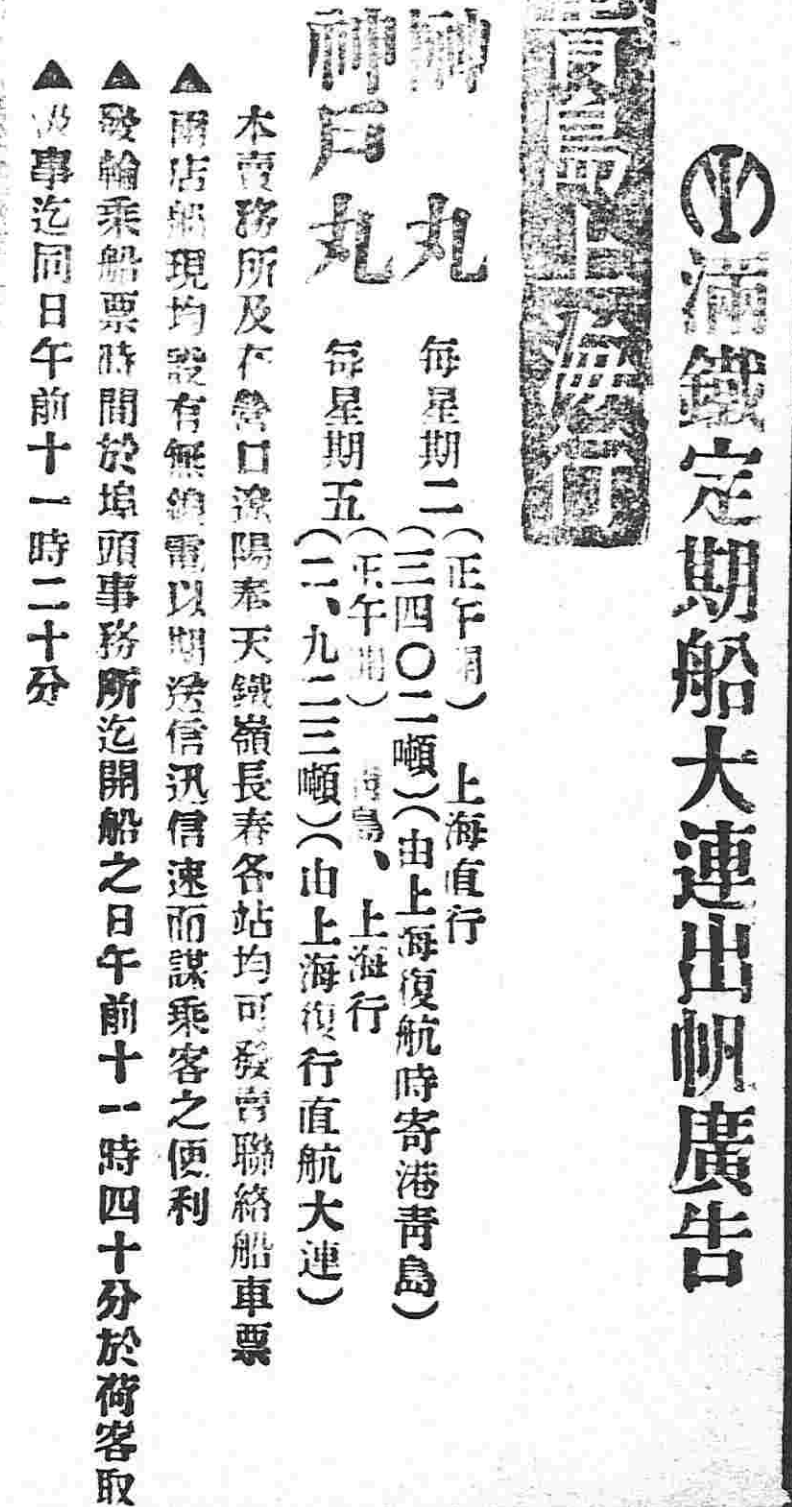 滿鐵定期船大連出帆廣告
青島上海行
榊丸 每星期二
(正午開) 上海直行
(三四〇二噸)(由上海復航時寄港青島)
神戶丸 每星期五
(正午開) 青島、上海行
(二、九二三噸)(由上海復行直航大連)
本賣務所及在營口遼陽奉天鐵嶺長春各站均可發賣聯絡船車票
▲兩店船現均設有無線電以期送信迅信速而謀乘客之便利
▲發輪乘船票時間於埠頭事務所迄開船之日午前十一時四十分於荷客取
▲事迄同日午前十一時二十分